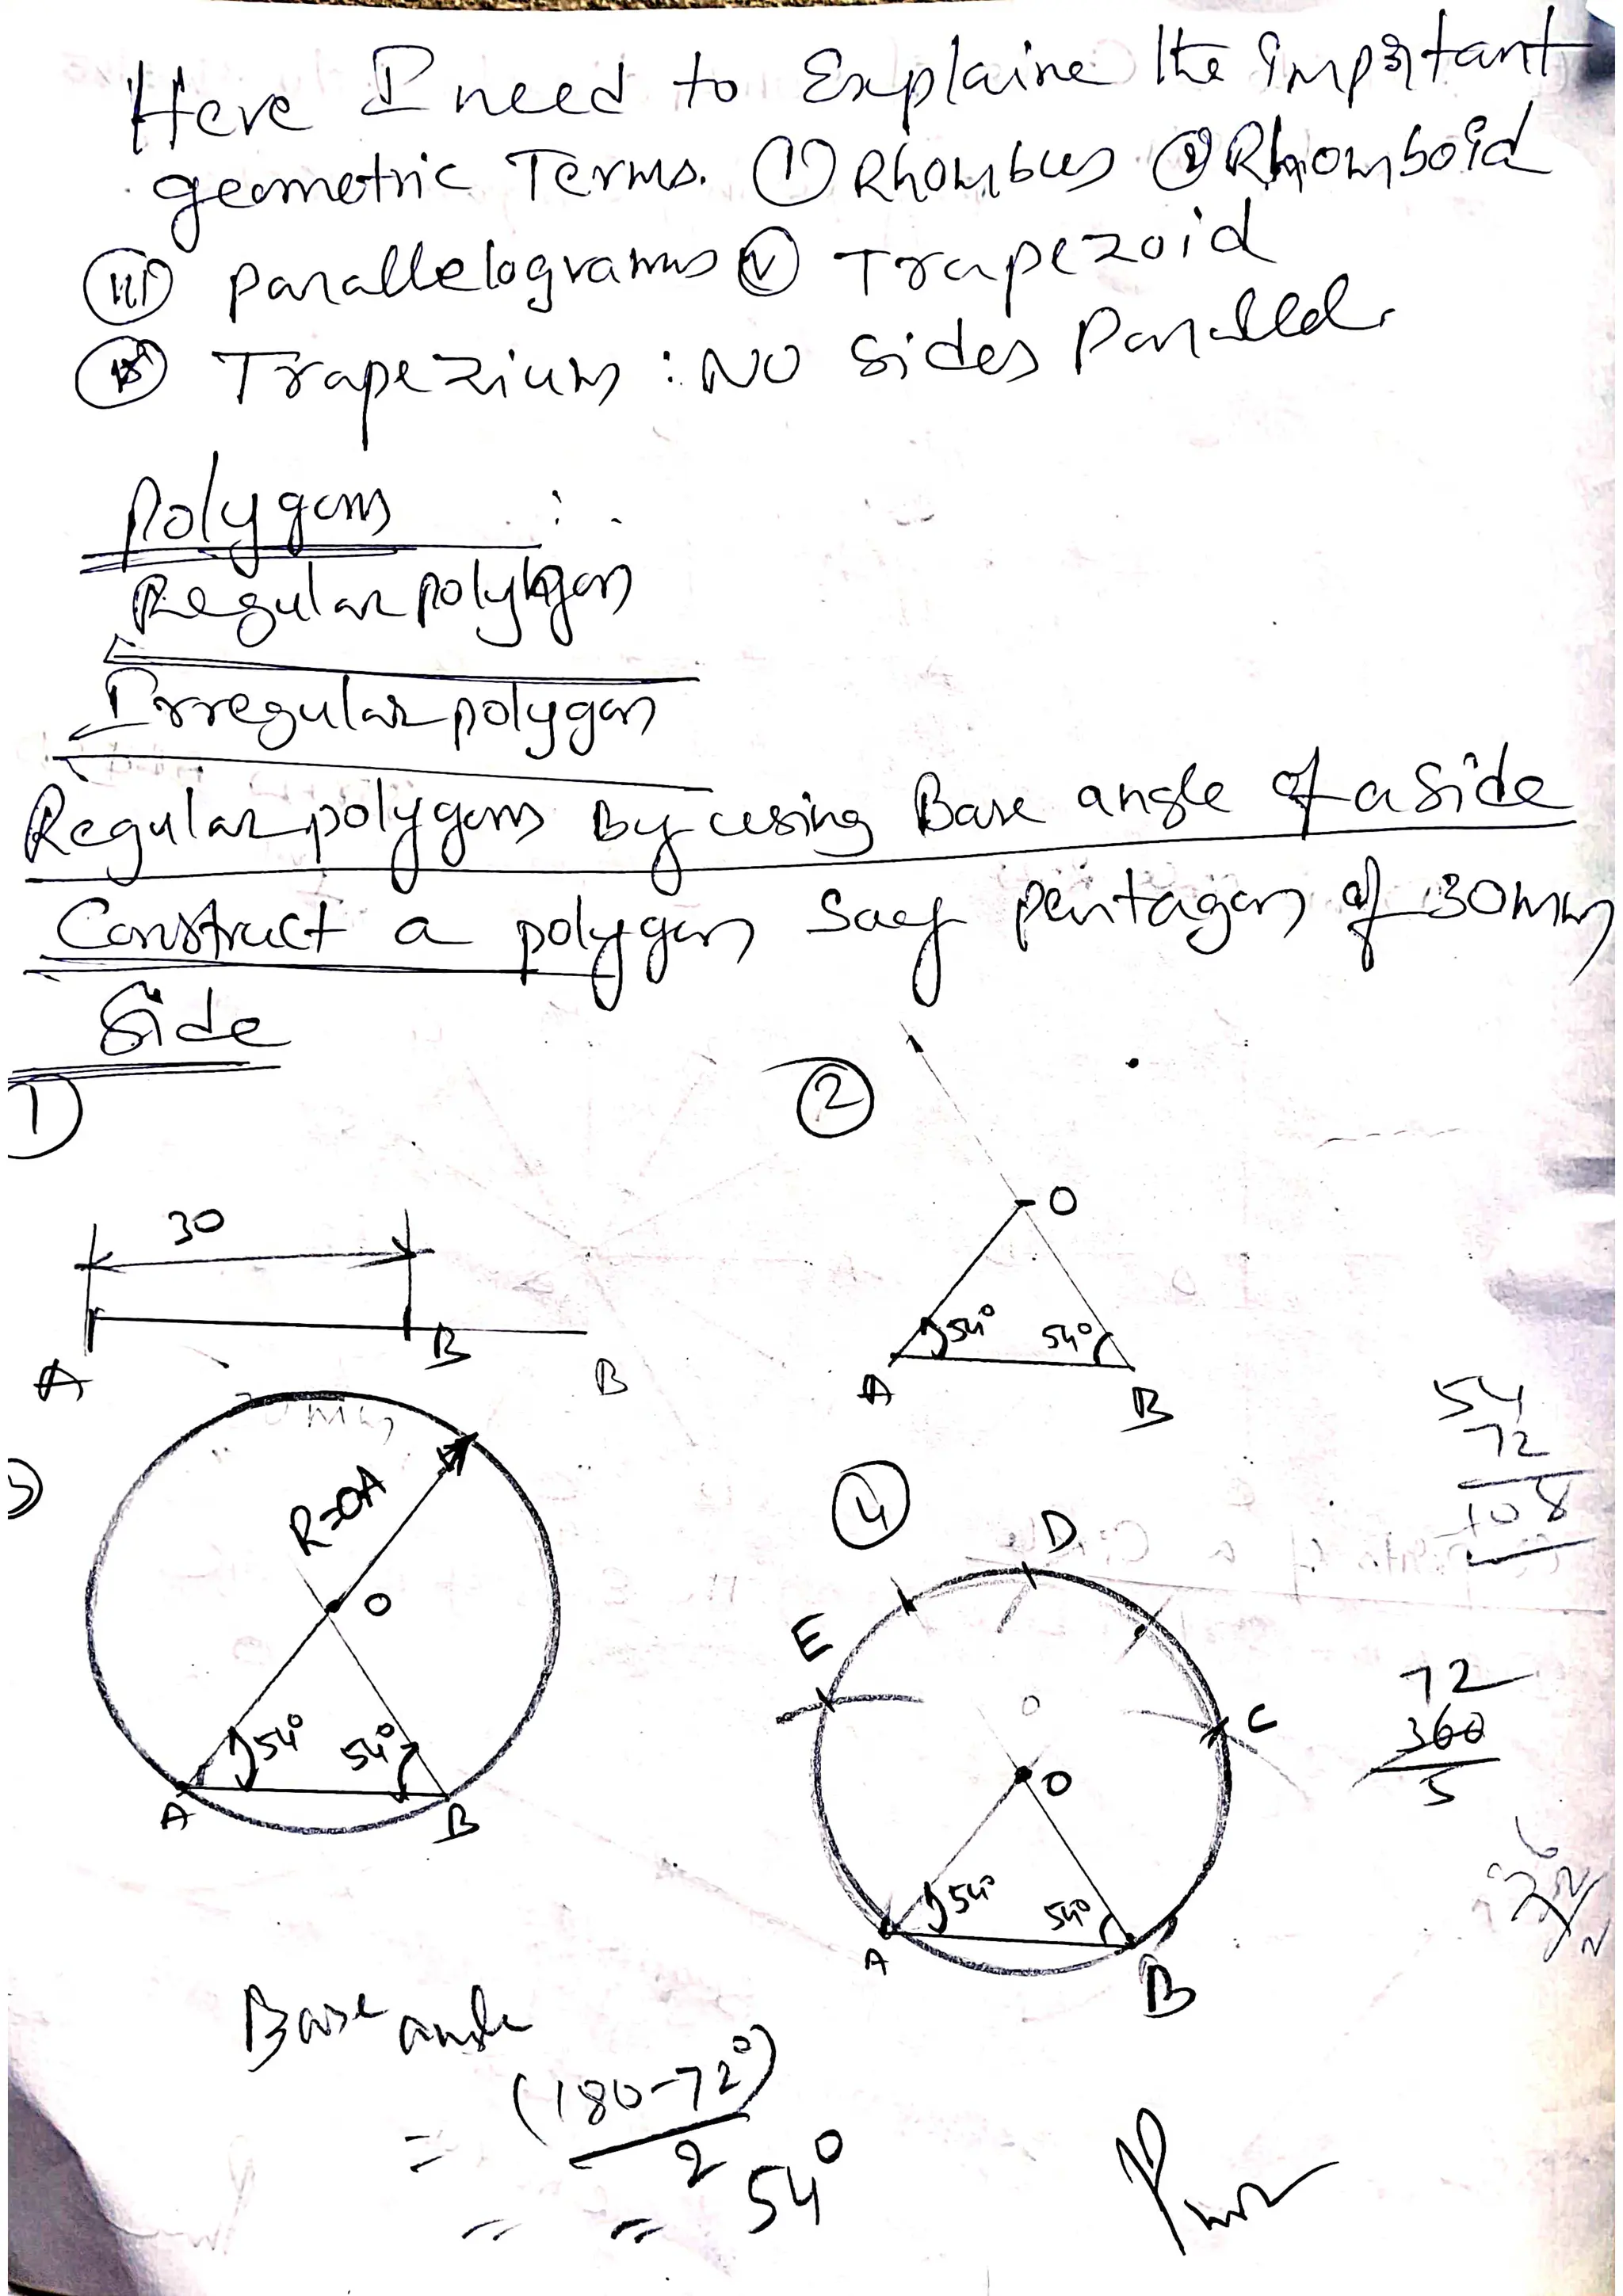 Here I need to Explaine the important
geometric Terms. (i) Rhombus (ii) Rhomboid
(iii) parallelograms (V) Trapezoid
Trapezium : NO Sides Parallel.
Polygons :
Regular polygon
Irregular polygon
Regular polygons By using Base angle of a side
Construct a polygon Say pentagon of 30mm
Side
1) (2)
30
O
54° 54°
A B B
A B
54
72
108
R=OA
O
54° 54°
A B
(4)
D
E
C
O
54° 54°
A B
72
360
5
Base angle
= (180-72°)
2
= 54°